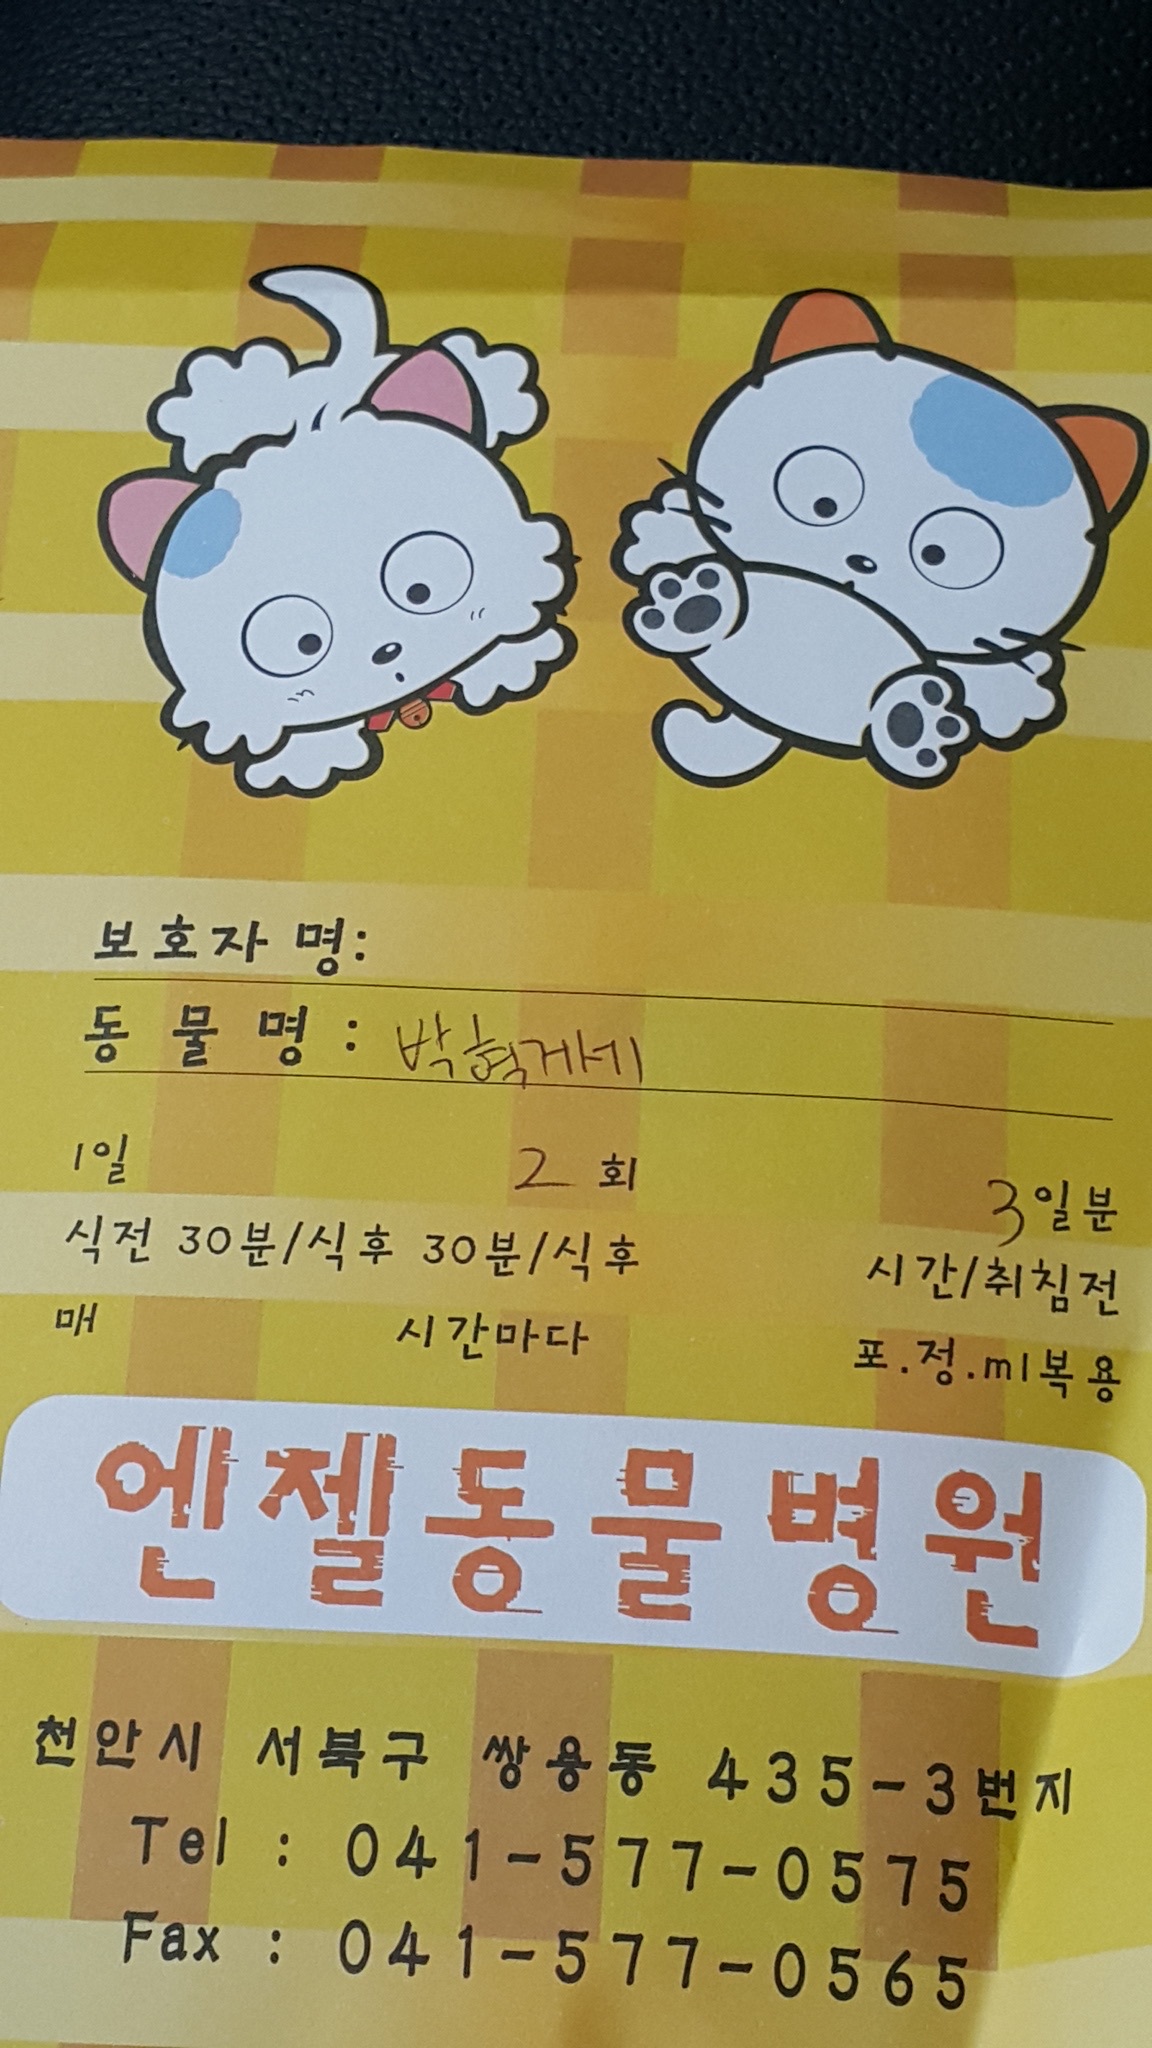 보호자 명:
동물명 : 박혁거세
1일 2 회 3일분
식전 30분/식후 30분/식후 시간/취침전
매 시간마다 포.정.ml복용
엔젤동물병원
천안시 서북구 쌍용동 435-3번지
Tel : 041-577-0575
Fax : 041-577-0565